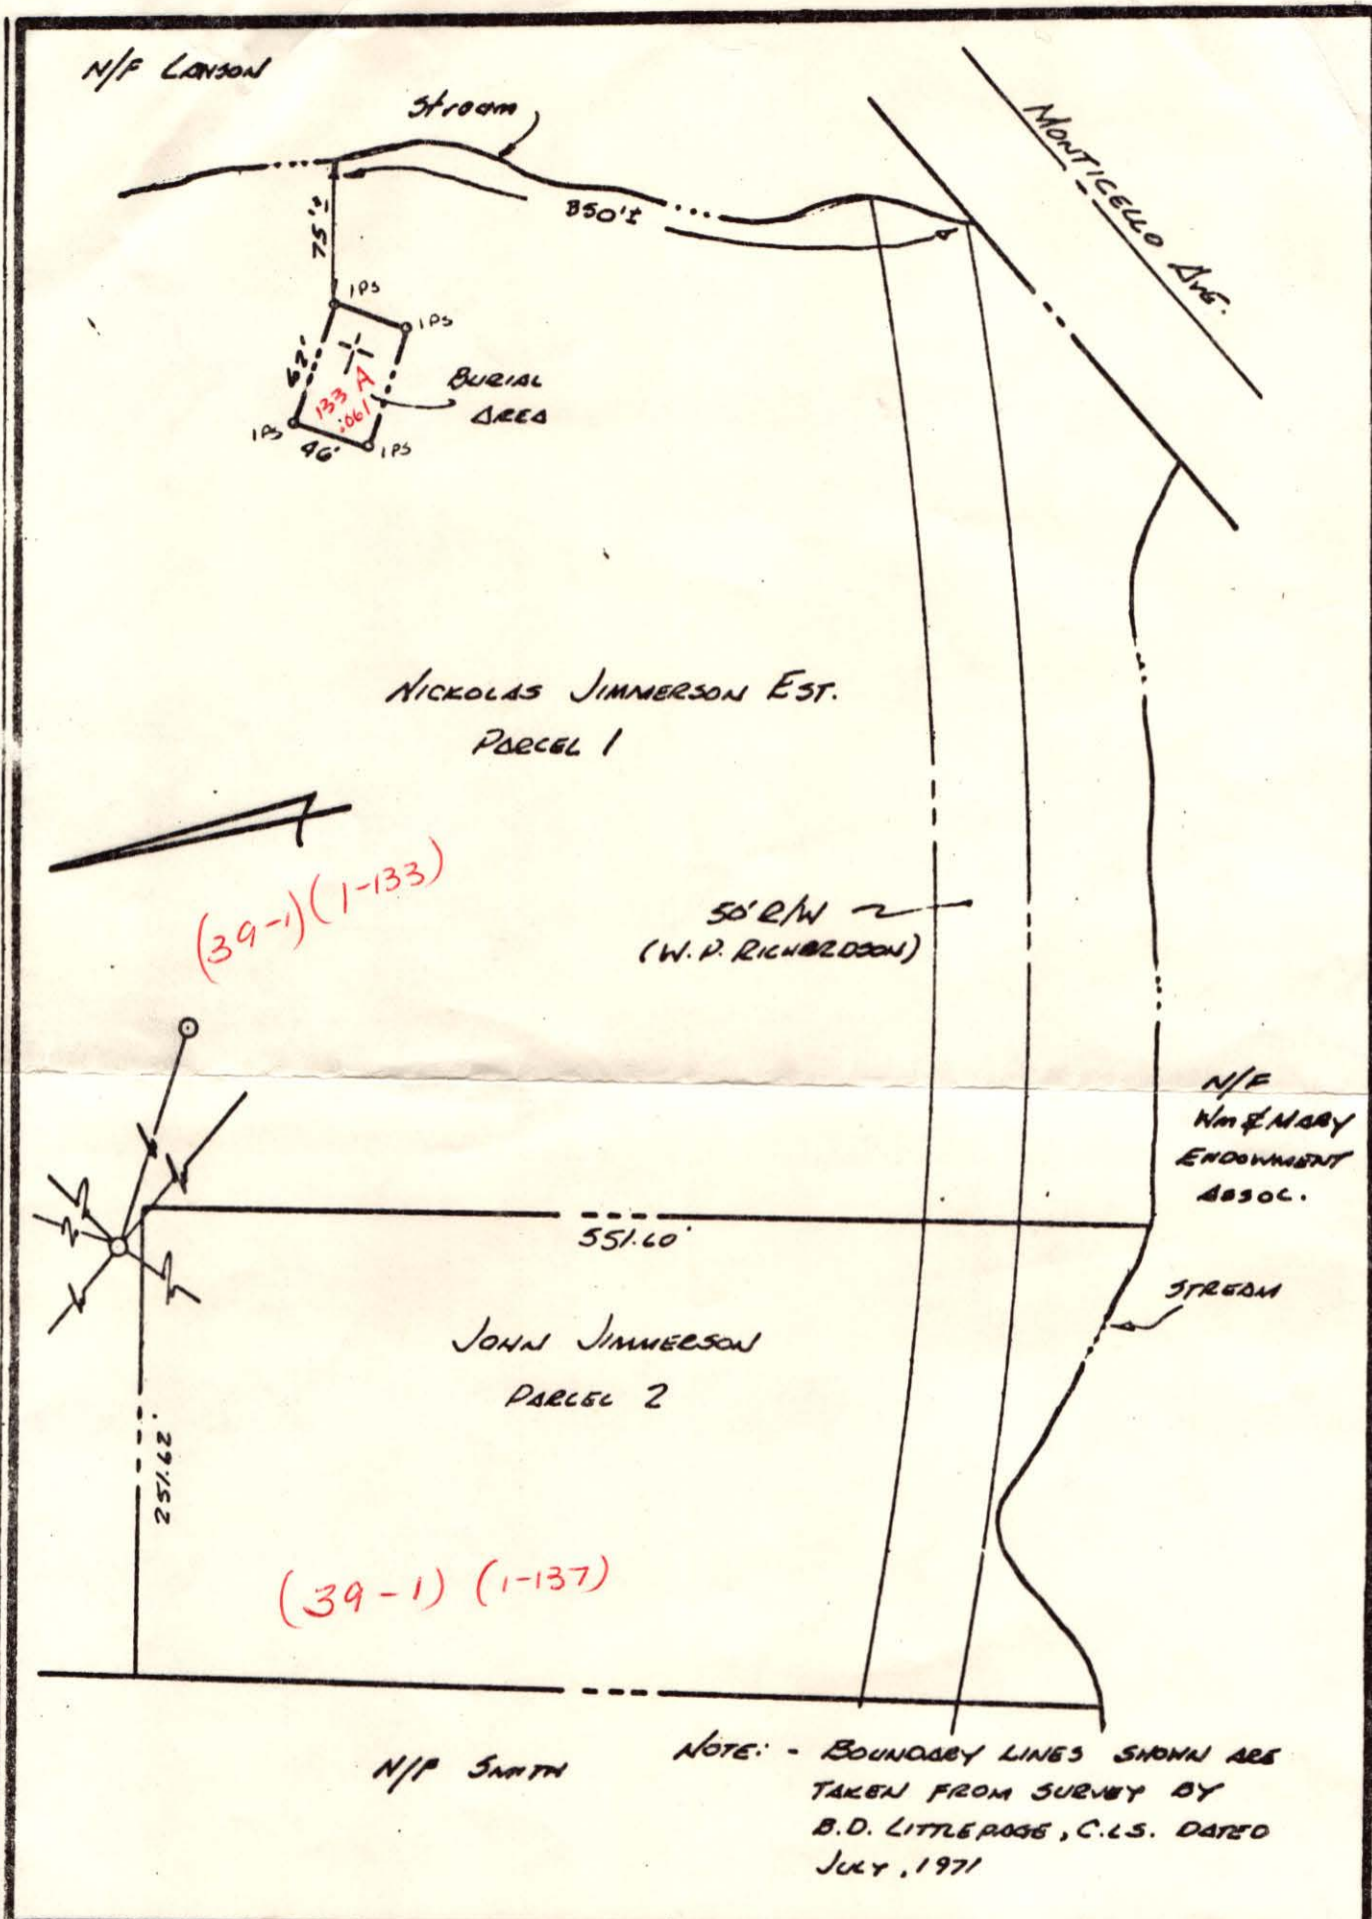 N/F LAWSON
Stream
MONTICELLO AVE.
850'±
75'±
IPS
IPS
62'
133 A
.061
BURIAL
AREA
IPS
46'
IPS
NICKOLAS JIMMERSON EST.
PARCEL 1
(39-1)(1-133)
50' R/W
(W.P. RICHARDSON)
N/F
WM & MARY
ENDOWMENT
ASSOC.
551.60'
STREAM
JOHN JIMMERSON
PARCEL 2
251.62'
(39-1) (1-137)
N/F SMITH
NOTE: - BOUNDARY LINES SHOWN ARE
TAKEN FROM SURVEY BY
B.D. LITTLEPAGE, C.L.S. DATED
JULY, 1971